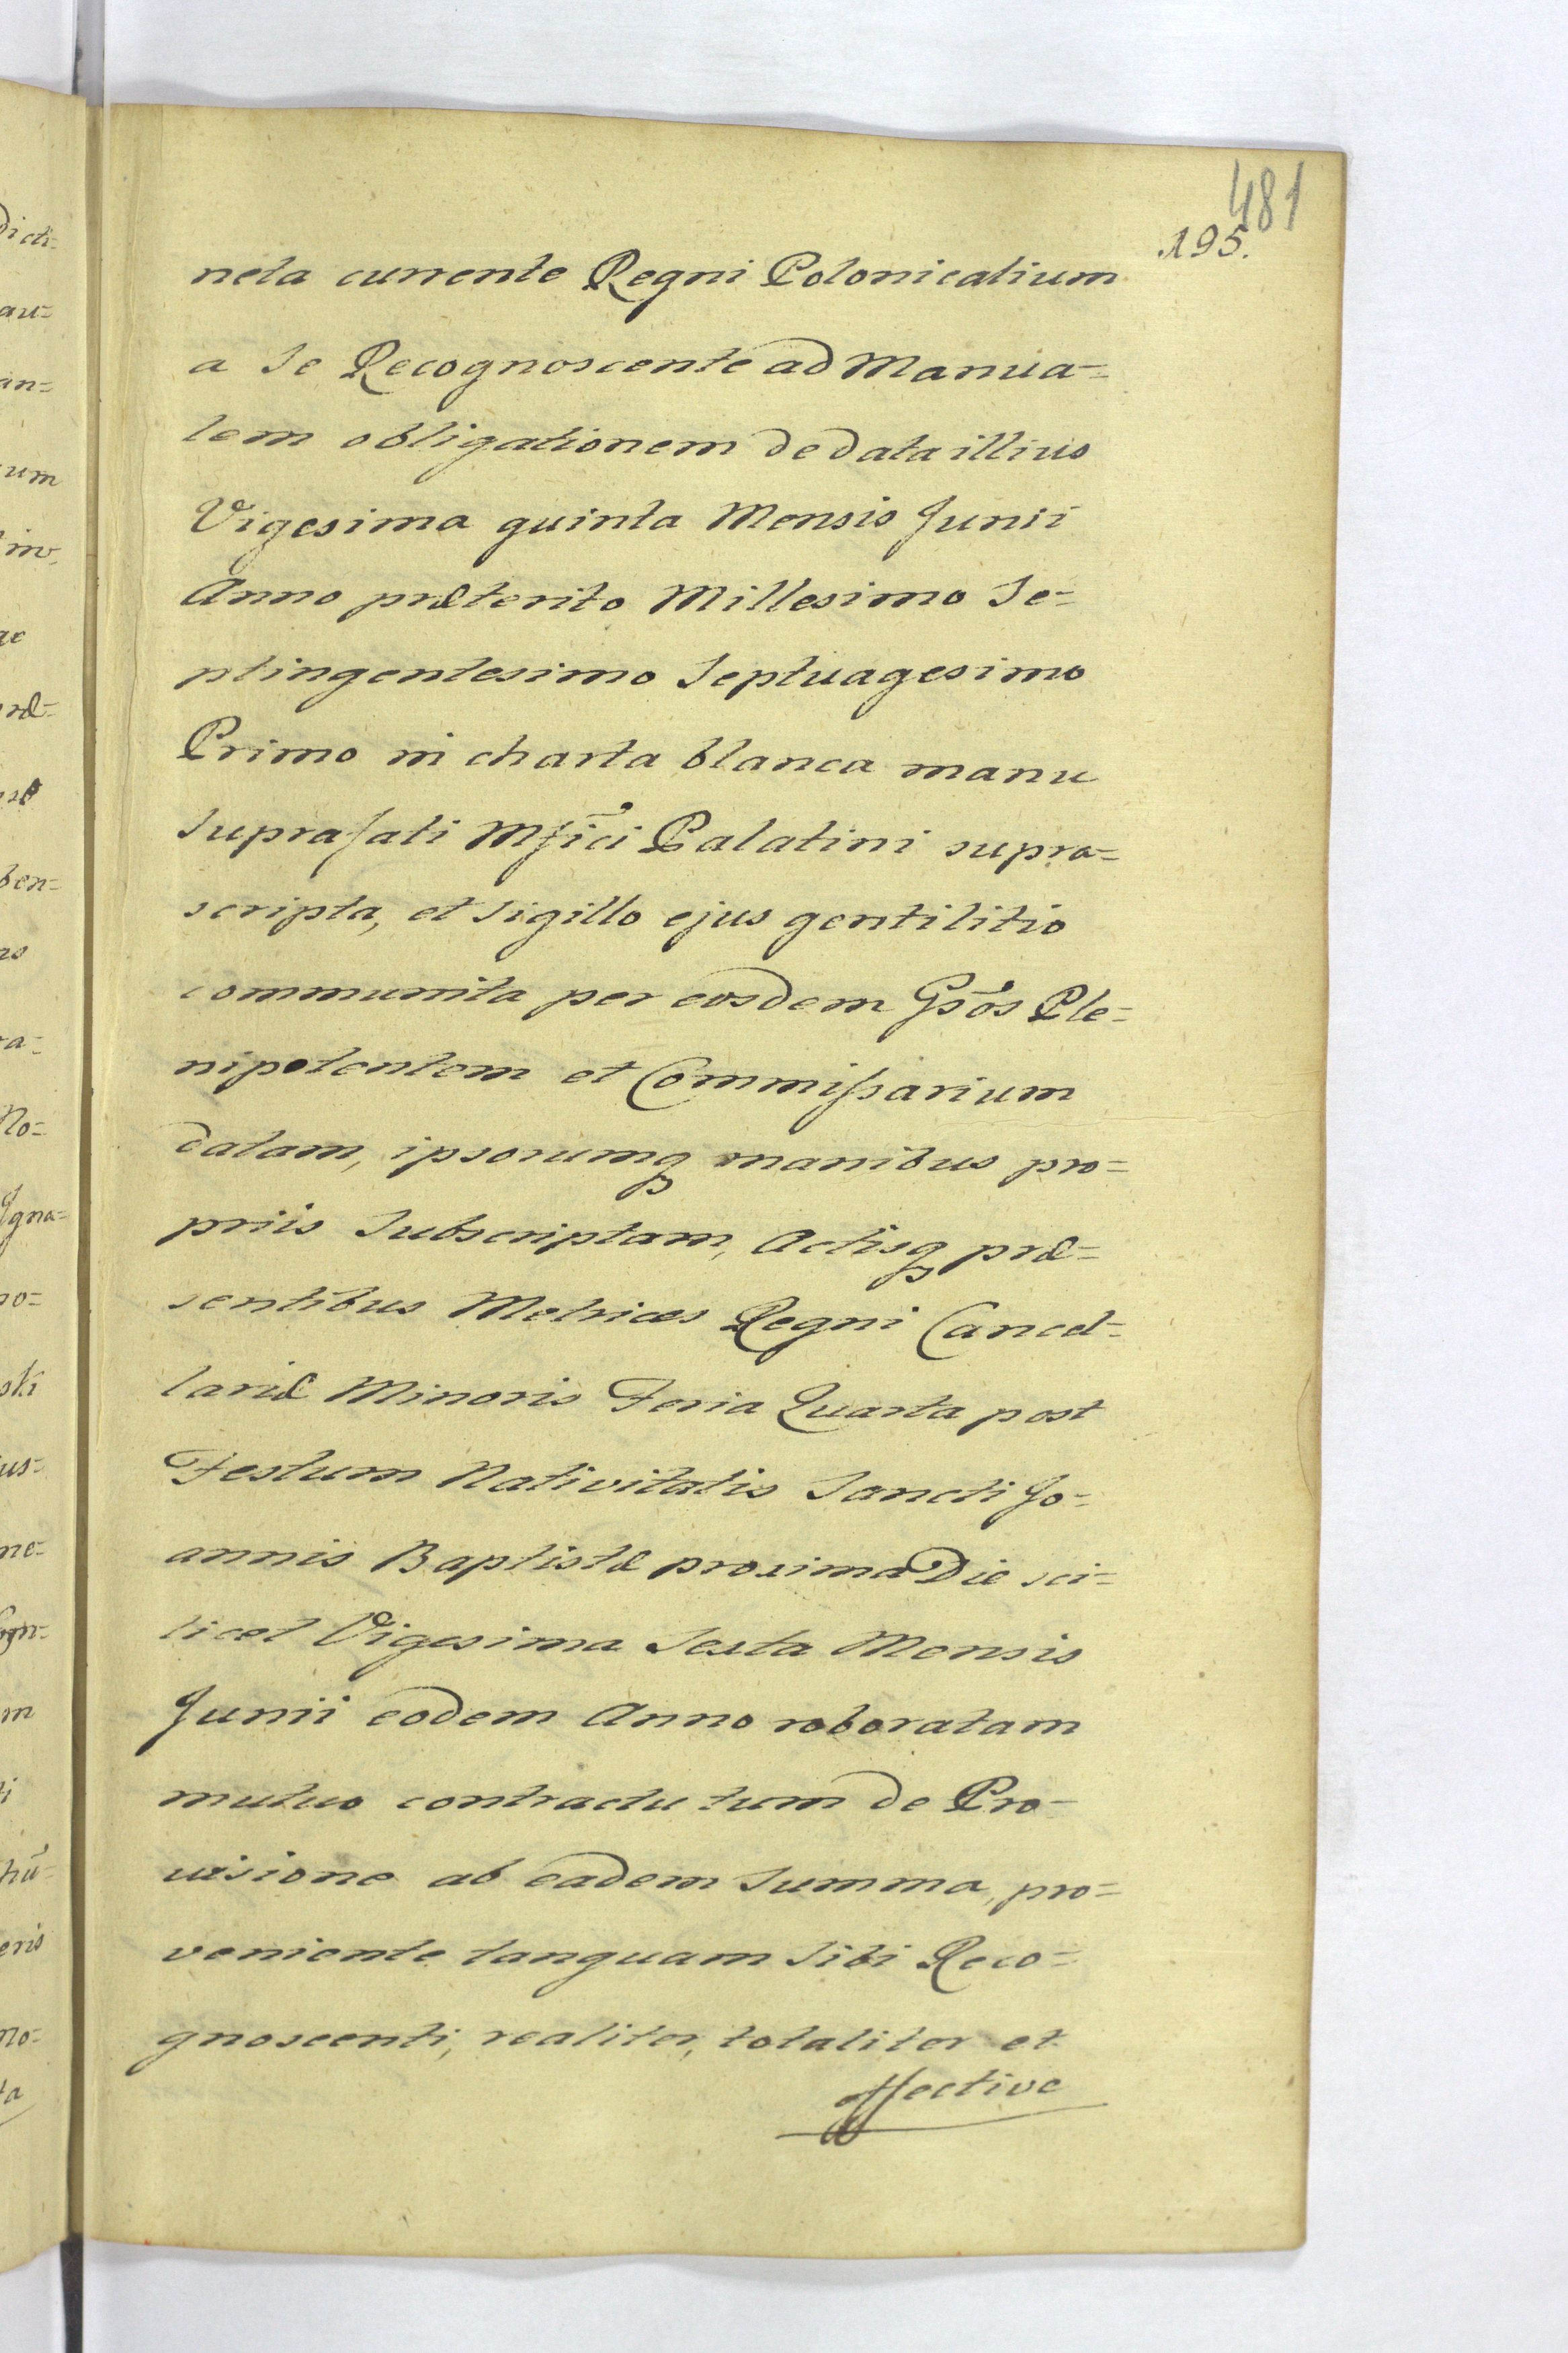 481
195.
neta currente Regni Polonicalium
a se Recognoscente ad Manua=
lem obligationem de data illius
Vigesima quinta Mensis Junii
Anno præterito Millesimo Se=
ptingentesimo Septuagesimo
Primo in charta blanca manu
suprafati Mfici Palatini supra=
scripta, et sigillo ejus gentilitio
communita per eosdem Gsos Ple=
nipotentem et Commissarium
datam, ipsorumq manibus pro=
priis subscriptam, Actisq præ=
sentibus Metrices Regni Cancel=
lariæ Minoris Feria Quarta post
Festum Nativitatis Sancti Jo=
annis Baptistæ proxima Die sci=
licet Vigesima Sexta Mensis
Junii eodem Anno roboratam
mutuo contractu tum de Pro=
visione ab eadem summa, pro=
veniente tanquam sibi Reco=
gnoscenti, realiter, totaliter et
effective